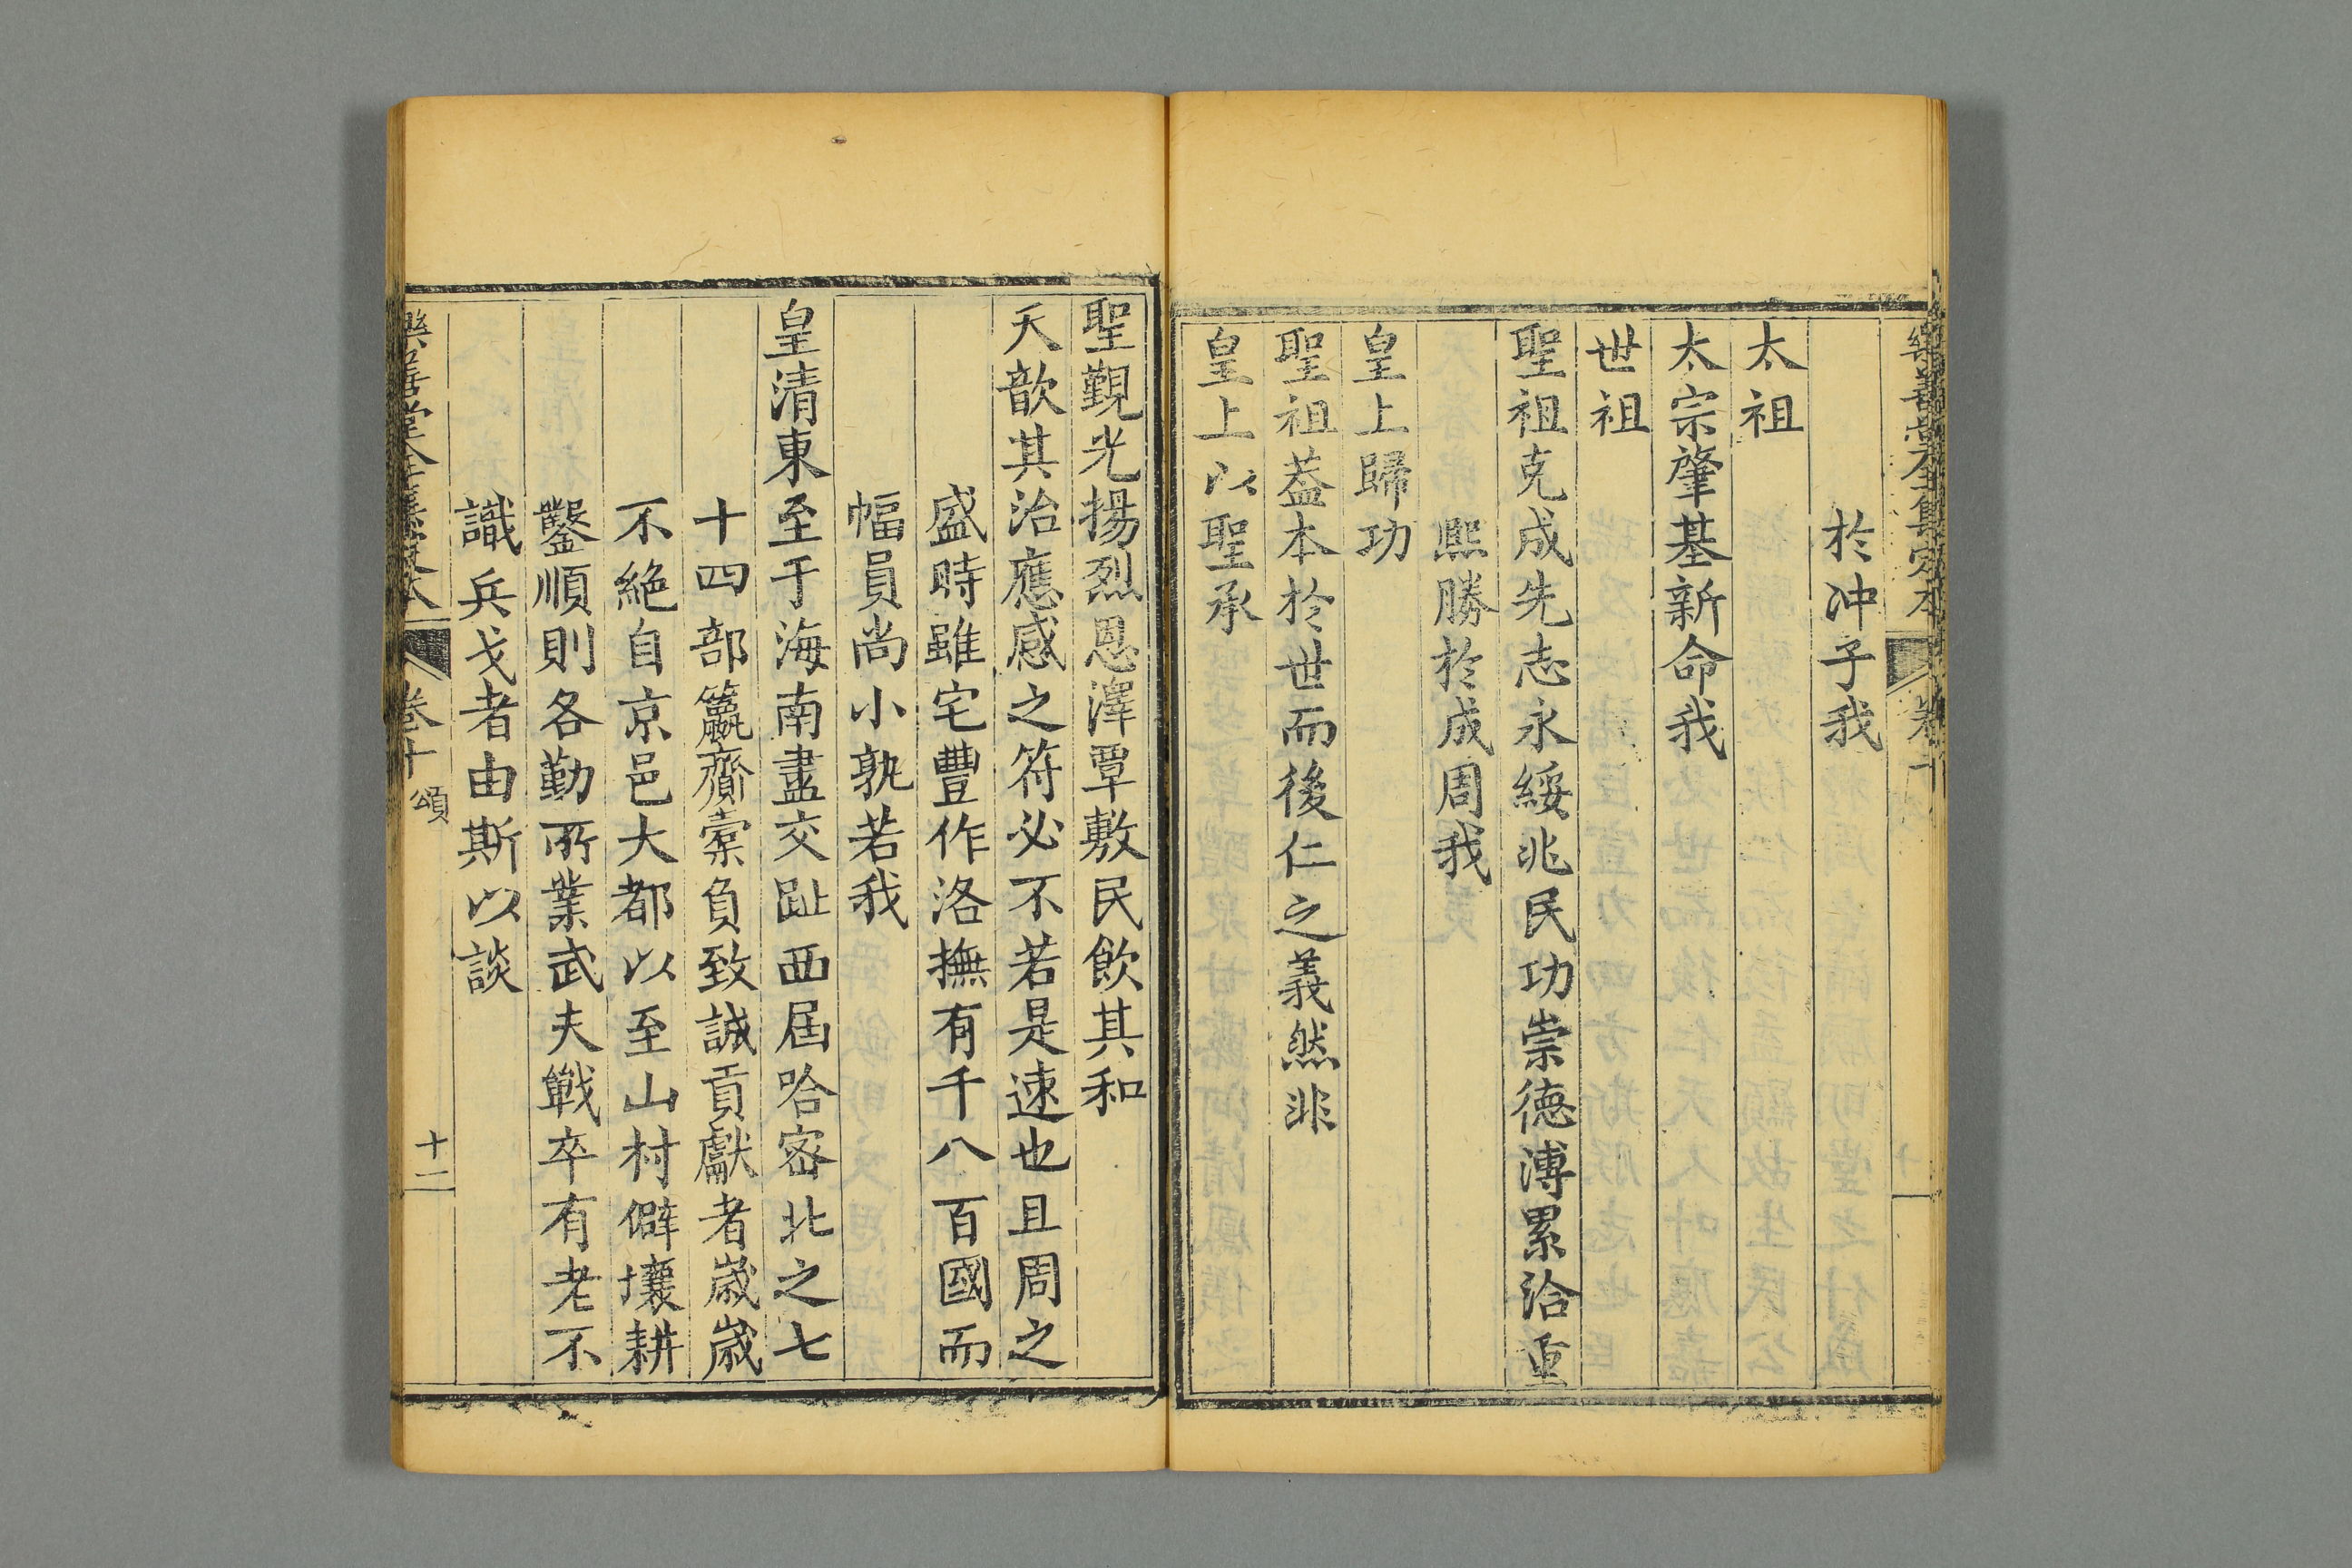 樂善堂全集定本 卷十
於冲子我
太祖
太宗肇基新命我
世祖
聖祖克成先志永綏兆民功崇德溥累洽重
熙勝於成周我
皇上歸功
聖祖葢本於世而後仁之義然非
皇上以聖承
聖覲光揚烈恩澤覃敷民飲其和
天歆其治應感之符必不若是速也且周之
盛時雖宅豐作洛撫有千八百國而
幅員尚小孰若我
皇清東至于海南盡交趾西屆哈密北之七
十四部籯齎橐負致誠貢獻者歲歲
不絕自京邑大都以至山村僻壤耕
鑿順則各勤所業武夫戰卒有老不
識兵戈者由斯以談
樂善堂全集定本 卷十 頌 十二